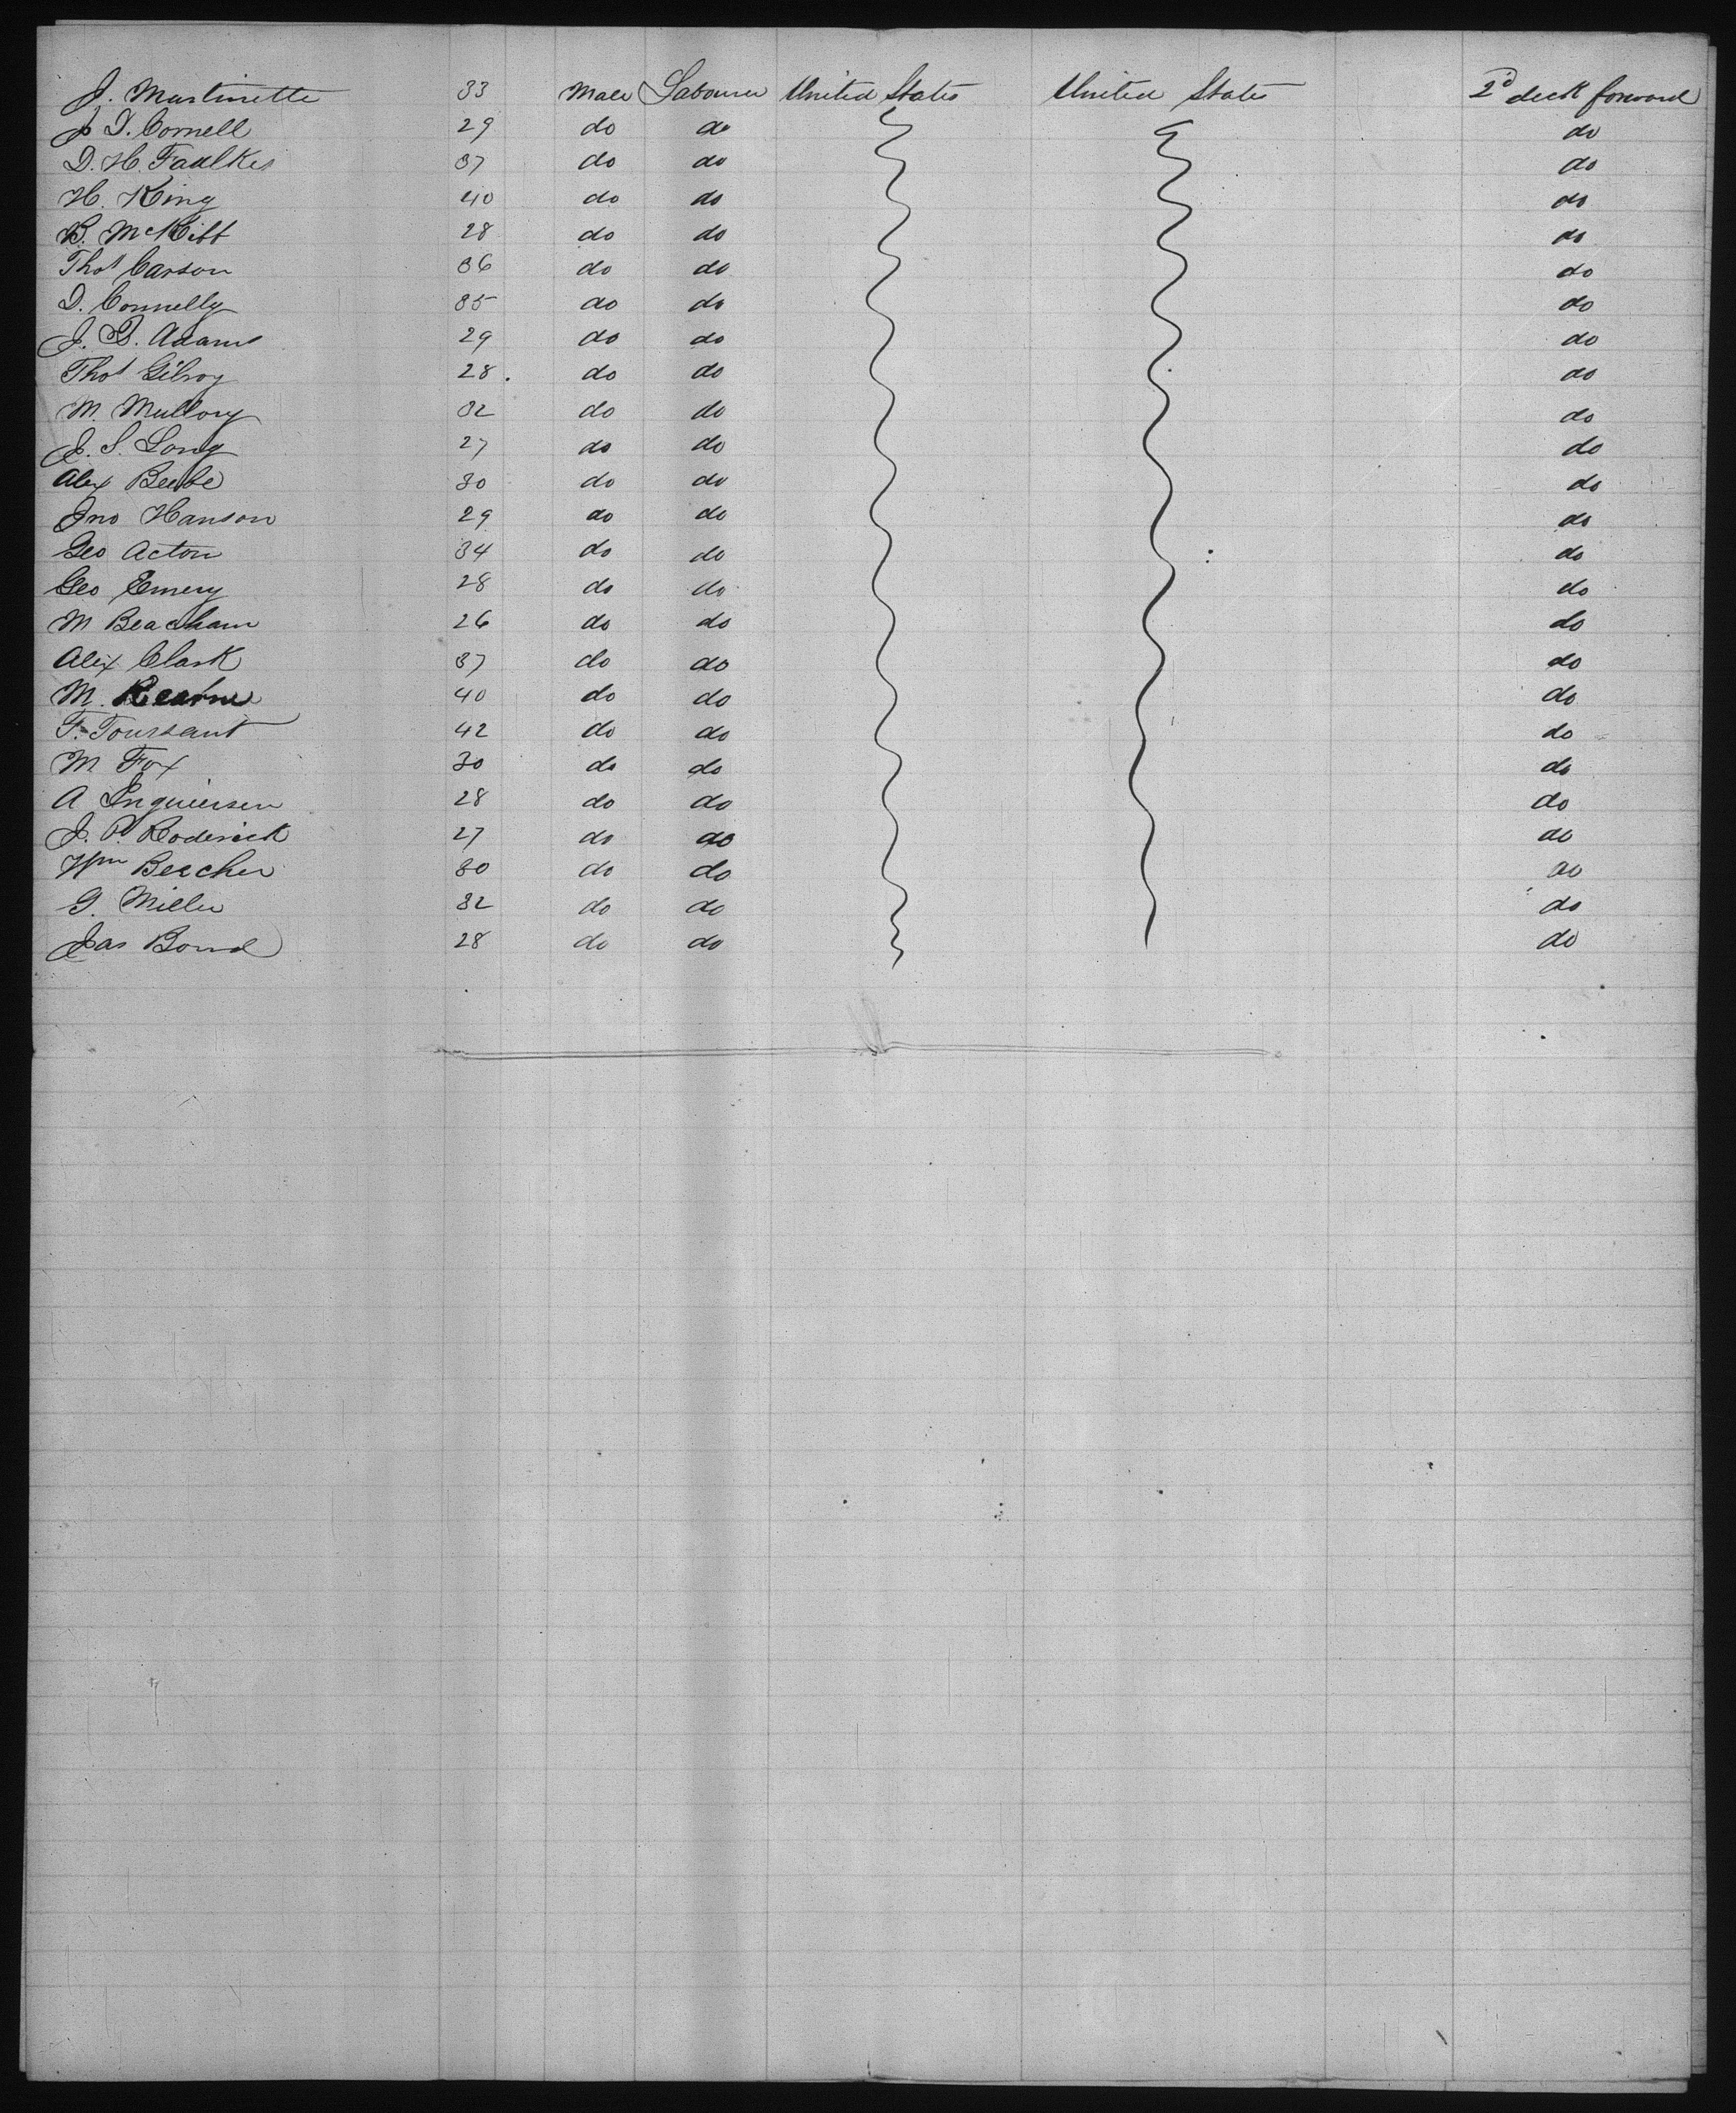 J. Martinette 33 Male Labourer United States United States 2d deck forward
J. D. Cornell 29 do do do
D. H. Faulkes 37 do do do
H. King 40 do do do
B. McKibb 28 do do do
Thos Carson 36 do do do
D. Connelly 35 do do do
J. D. Adams 29 do do do
Thos Gilroy 28 do do do
M. Mullory 32 do do do
J. S. Long 27 do do do
Alex Beebe 30 do do do
Jno Hanson 29 do do do
Geo Acton 34 do do do
Geo Emery 28 do do do
M Beacham 26 do do do
Alex Clark 37 do do do
M. Kearne 40 do do do
F. Toussant 42 do do do
M Fox 30 do do do
A 28 do do do
J. P. Roderick 27 do do do
Wm Beecher 30 do do do
G. Miller 32 do do do
Jas Bond 28 do do do